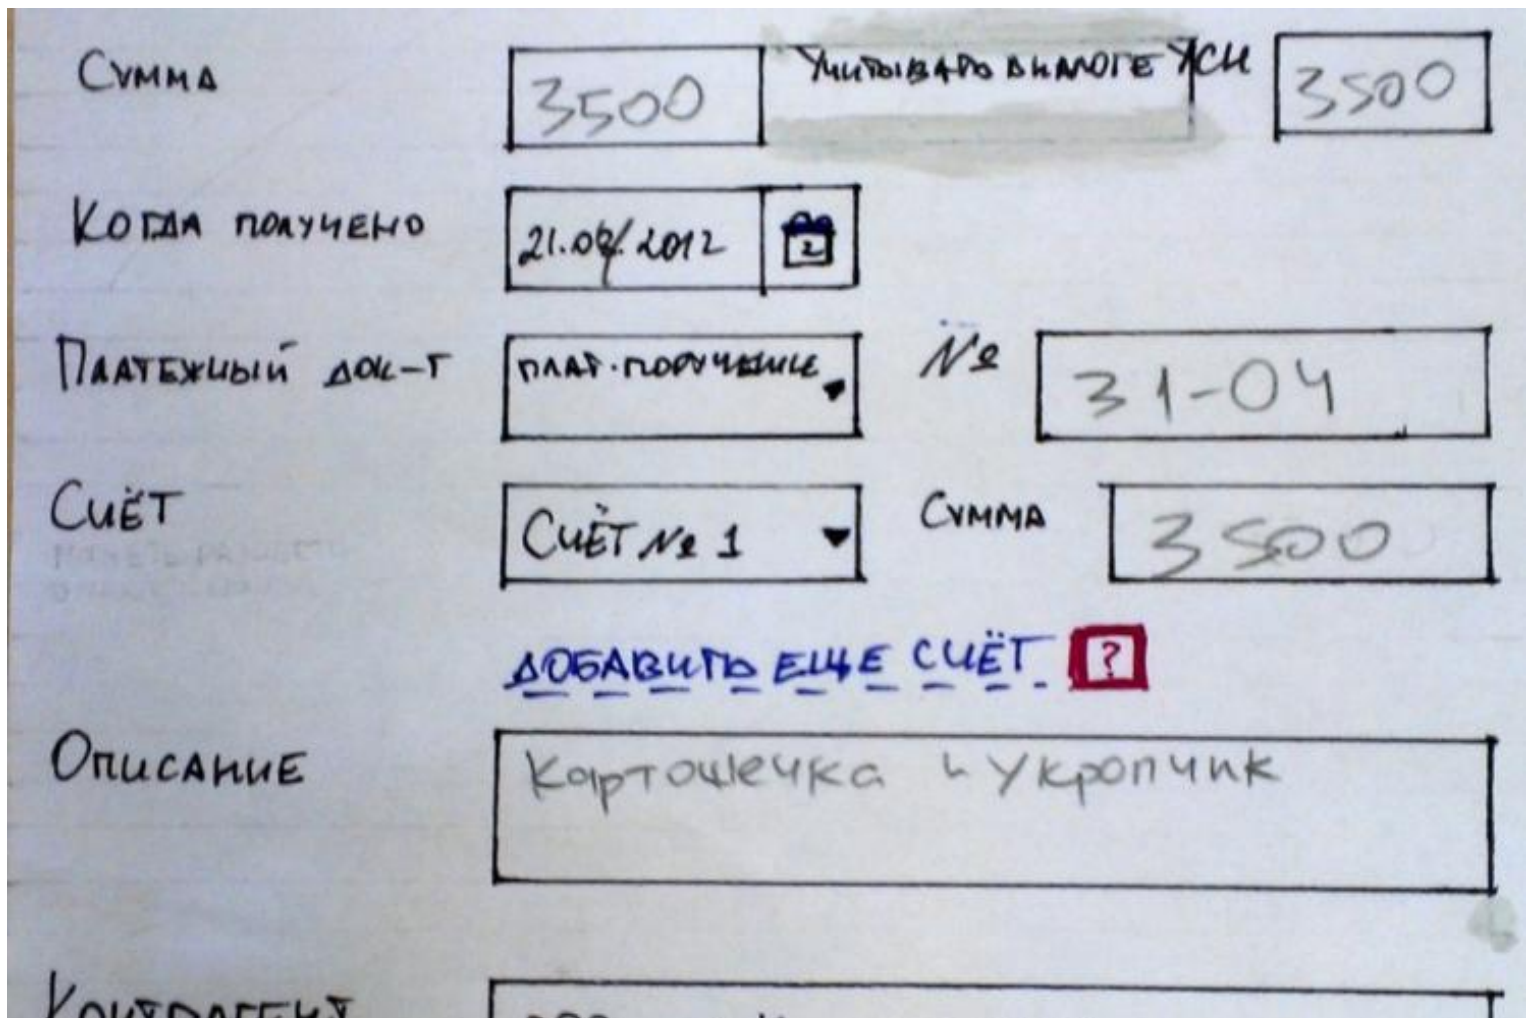 Сумма 3500 Учитывать в налоге УСН 3500
Когда получено 21.08.2012 2
Платежный док-т плат. поручение № 31-04
Счёт Счёт № 1 Сумма 3500
Добавить еще счёт ?
Описание Картошечка и укропчик
Контрагент